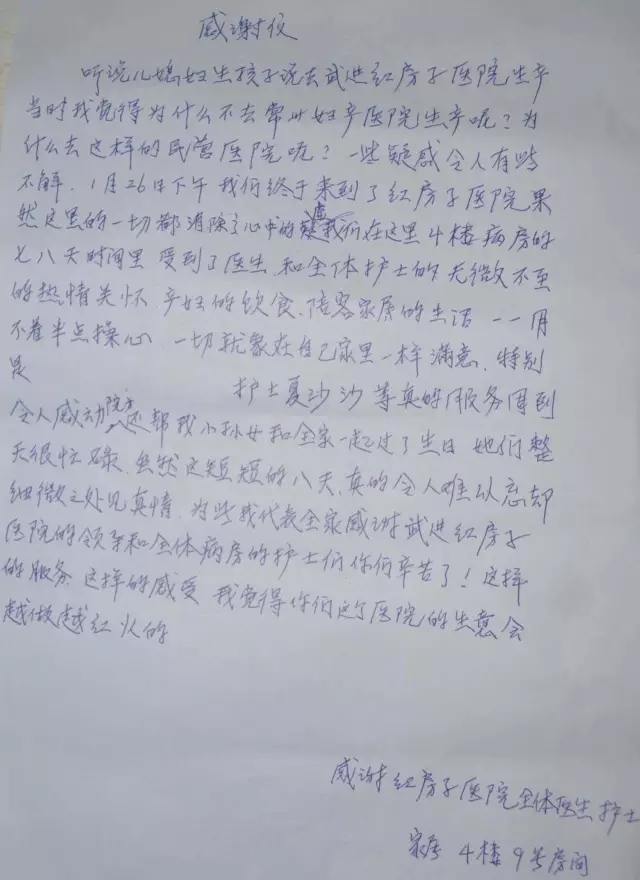 感谢仪
听说儿媳妇生孩子说去武进红房子医院生产
当时我觉得为什么不去常州妇产医院生产呢？为
什么去这样的民营医院呢？一些疑惑令人有些
不解。1月26日下午我们终于来到了红房子医院果
然这里的一切都消除了心中的疑虑我们在这里4楼病房的
七八天时间里 受到了医生 和全体护士的无微不至
的热情关怀 产妇的饮食、陪客家属的生活 一一用
不着半点操心 一切就象在自己家里一样满意、特别
是 护士夏沙沙等真的服务周到
令人感动院方还帮我小孙女和全家一起过了生日 她们整
天很忙碌、虽然这短短的八天、真的令人难以忘却
细微之处见真情、为此我代表全家感谢武进红房子
医院的领导和全体病房的护士们你们辛苦了！这样
的服务 这样的感受 我觉得你们这个医院的生意会
越做越红火的
感谢红房子医院全体医生护士
家属 4楼9号房间